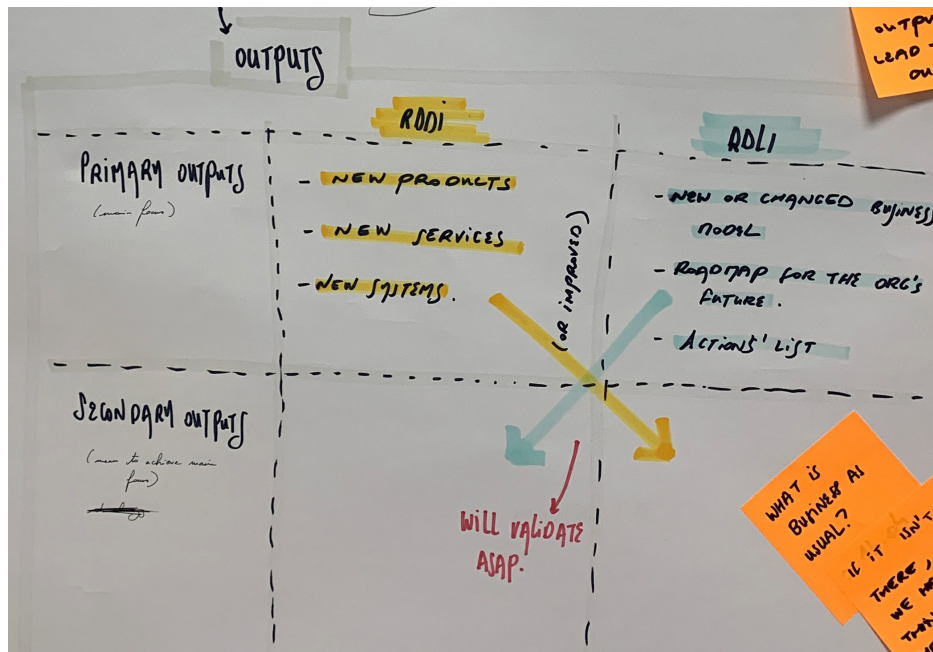 OUTPUTS
RDDI
RDLI
PRIMARY OUTPUTS
(main focus)
- NEW PRODUCTS
- NEW SERVICES
- NEW SYSTEMS.
(OR IMPROVED)
- NEW OR CHANGED BUSINESS
MODEL
- ROADMAP FOR THE ORG'S
FUTURE.
- ACTIONS' LIST
SECONDARY OUTPUTS
to achieve main
focus)
WILL VALIDATE
ASAP.
LEAD
WHAT IS
BUSINESS AS
USUAL?
IF IT ISN'T
THERE,
WE